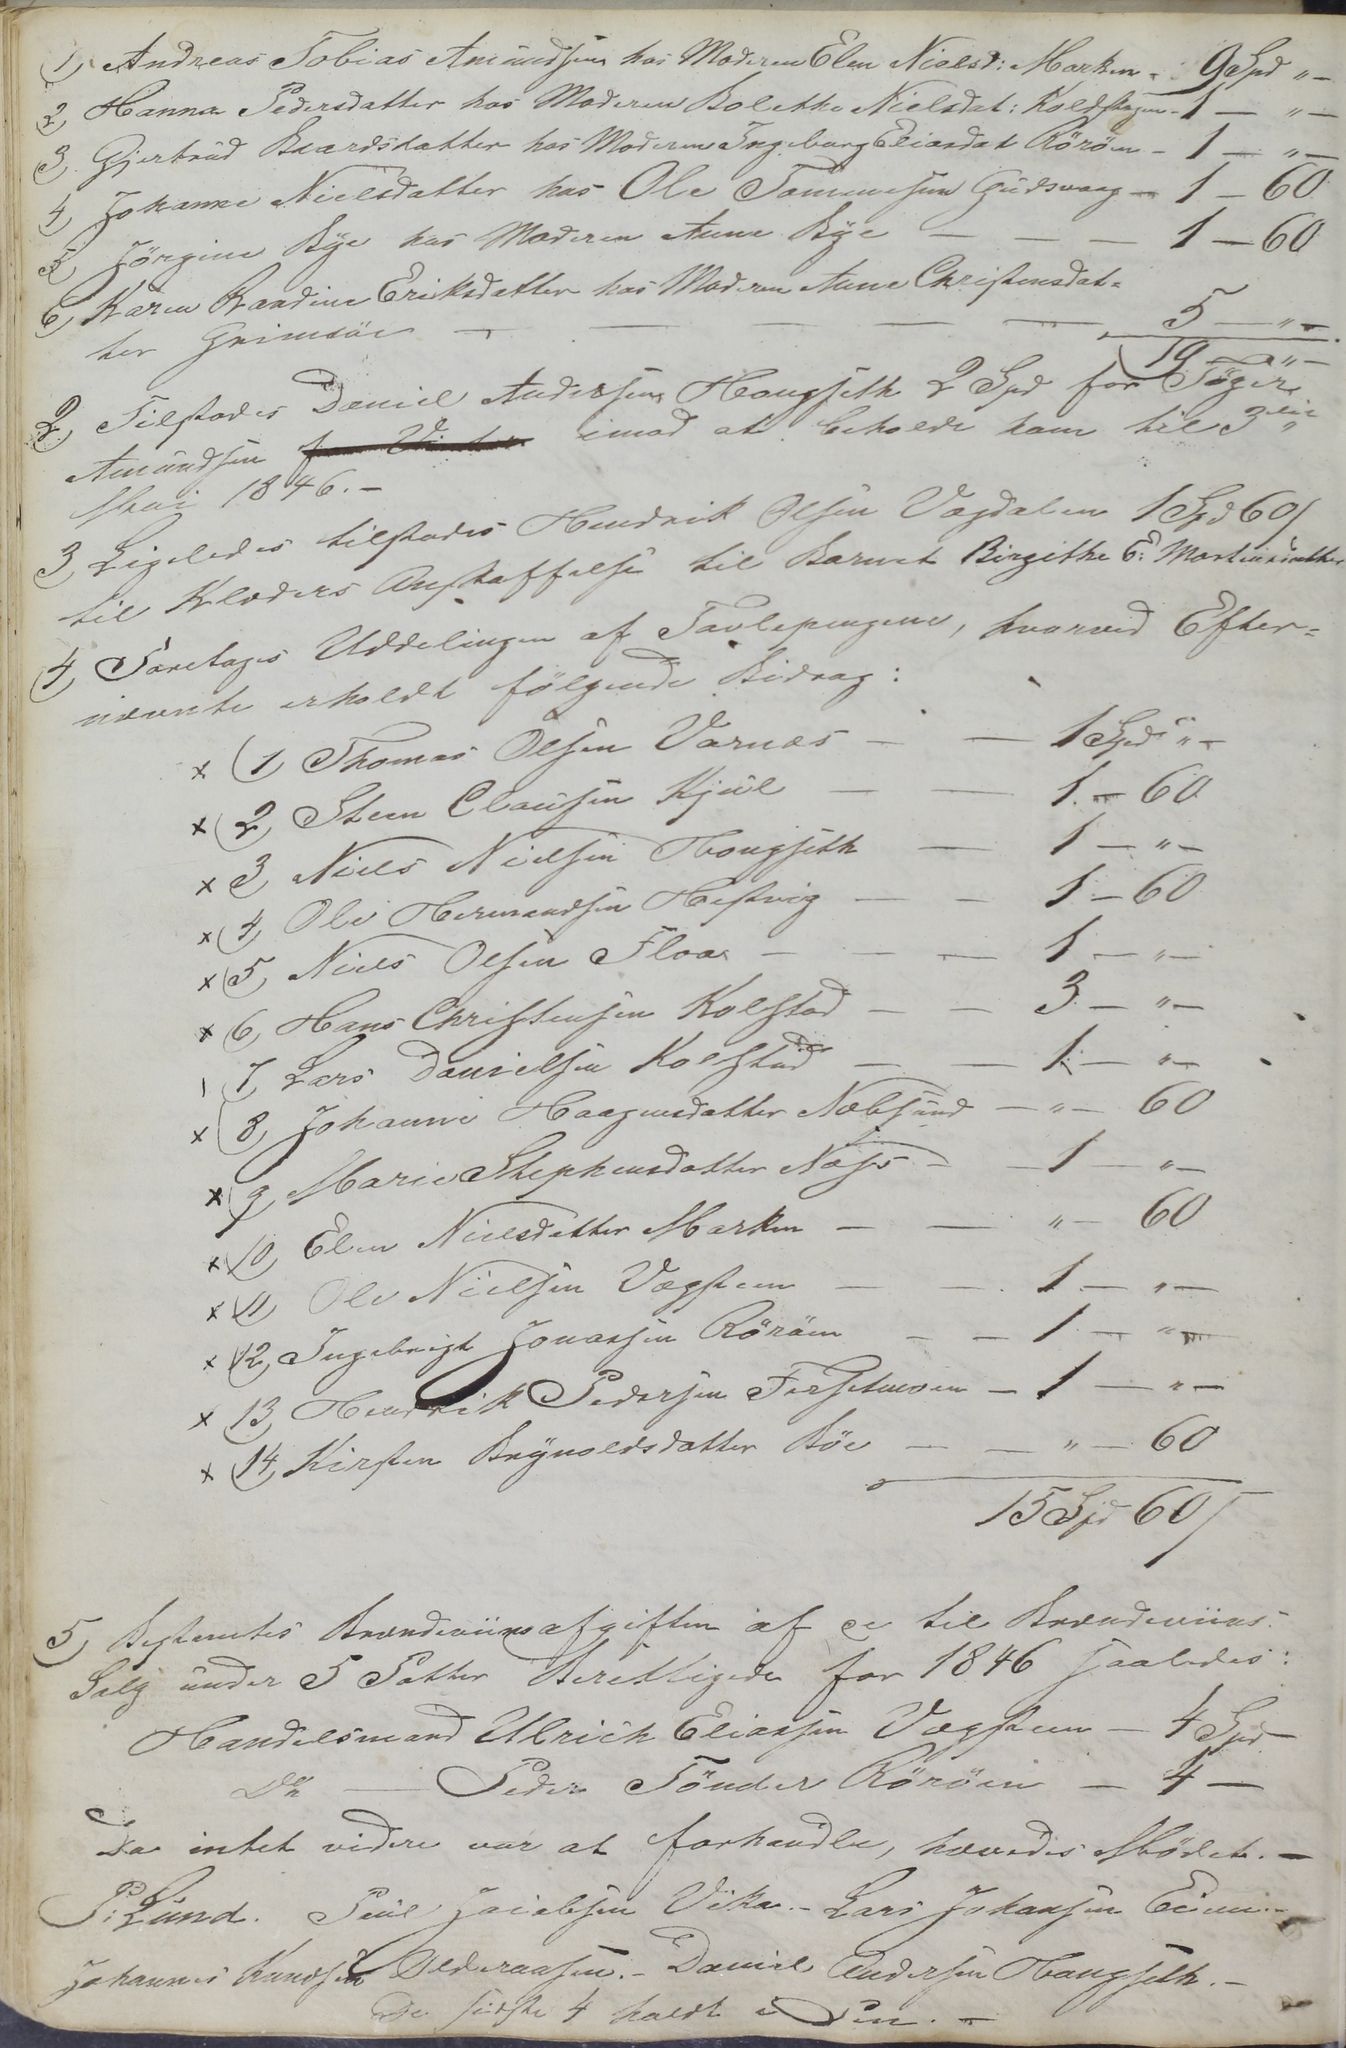 1, Andreas Tobias Amundsen hos Moderen Elen Nielsd: Marken - 9 Spd " -
2, Hanna Pedersdatter hos Moderen Bolette Nielsdat: - 1 - " -
3, Gjertrud Baardsdatter hos Moderen Ingeborg Eliasdat Röröen - 1 - " -
4, Johanna Nielsdatter hos Ole Tommesen Gudsvaag - 1 - 60
5, Jörgine Bye hos Moderen Anne Bye - - - 1 - 60
6, Karen Raadine Eriksdatter hos Moderen Anne Christensdat-
ter Grimsöe - - - - - 5 - " -
19 - " -
2, Tilstodes Daniel Andersen Hougseth 2 Spd for Töger
Amundsen imod at beholde ham til 3die
Mai 1846. -
3, Ligeledes tilstodes Hendrik Olsen Vogdalen 1 Spd 60 s
til Klæders Anskaffelse til Barnet Birgithe E: Martinsdatter
4, Foretages Uddelingen af Tavlepengene, hvorved Efter-
nævnte erholdt fölgende Bidrag:
x (1, Thomas Olsen Varnæs - - 1 Spd " -
x (2, Steen Clausen Kjul - - 1 - 60
x 3, Niels Nielsen Hougseth - 1 - " -
x (4, Ole Hermandsen Hestvig - - 1 - 60
x (5, Niels Olsen Floa - - - 1 - " -
x (6, Hans Christensen Kolstad - - 3 - " -
7, Lars Danielsen Kolstad - - 1 - " -
x (8, Johanne Haagensdatter Nabsund - " - 60
x (9, Marie Stephensdatter Næss - - 1 - " -
x (10, Elen Nielsdatter Marken - - " - 60
x (11, Ole Nielsen Vegsteen - - 1 - " -
x (12, Ingebrigt Jonassen Röröen - - 1 - " -
x (13, Hendrik Pedersen Forsetmoen - 1 - " -
x (14, Kirsten Brynoldsdatter Böe - - " - 60
15 Spd 60 s
5, Bestemtes Brændeviinsafgiften af de til Brændeviins-
Salg under 5 Potter Berettigede for 1846 saaledes:
Handelsmand Ullrich Eliassen Vegsteen - 4 Spd -
Do - Peder Tönder Röröen - 4 -
Da intet videre var at forhandle, hævedes Mödet. -
P: Lund. Paul Jacobsen Vika. - Lars Johansen -
Johannes Knudsen Olderaasen. - Daniel Andersen Hougseth. -
De sidste 4 holdt i Pen. -